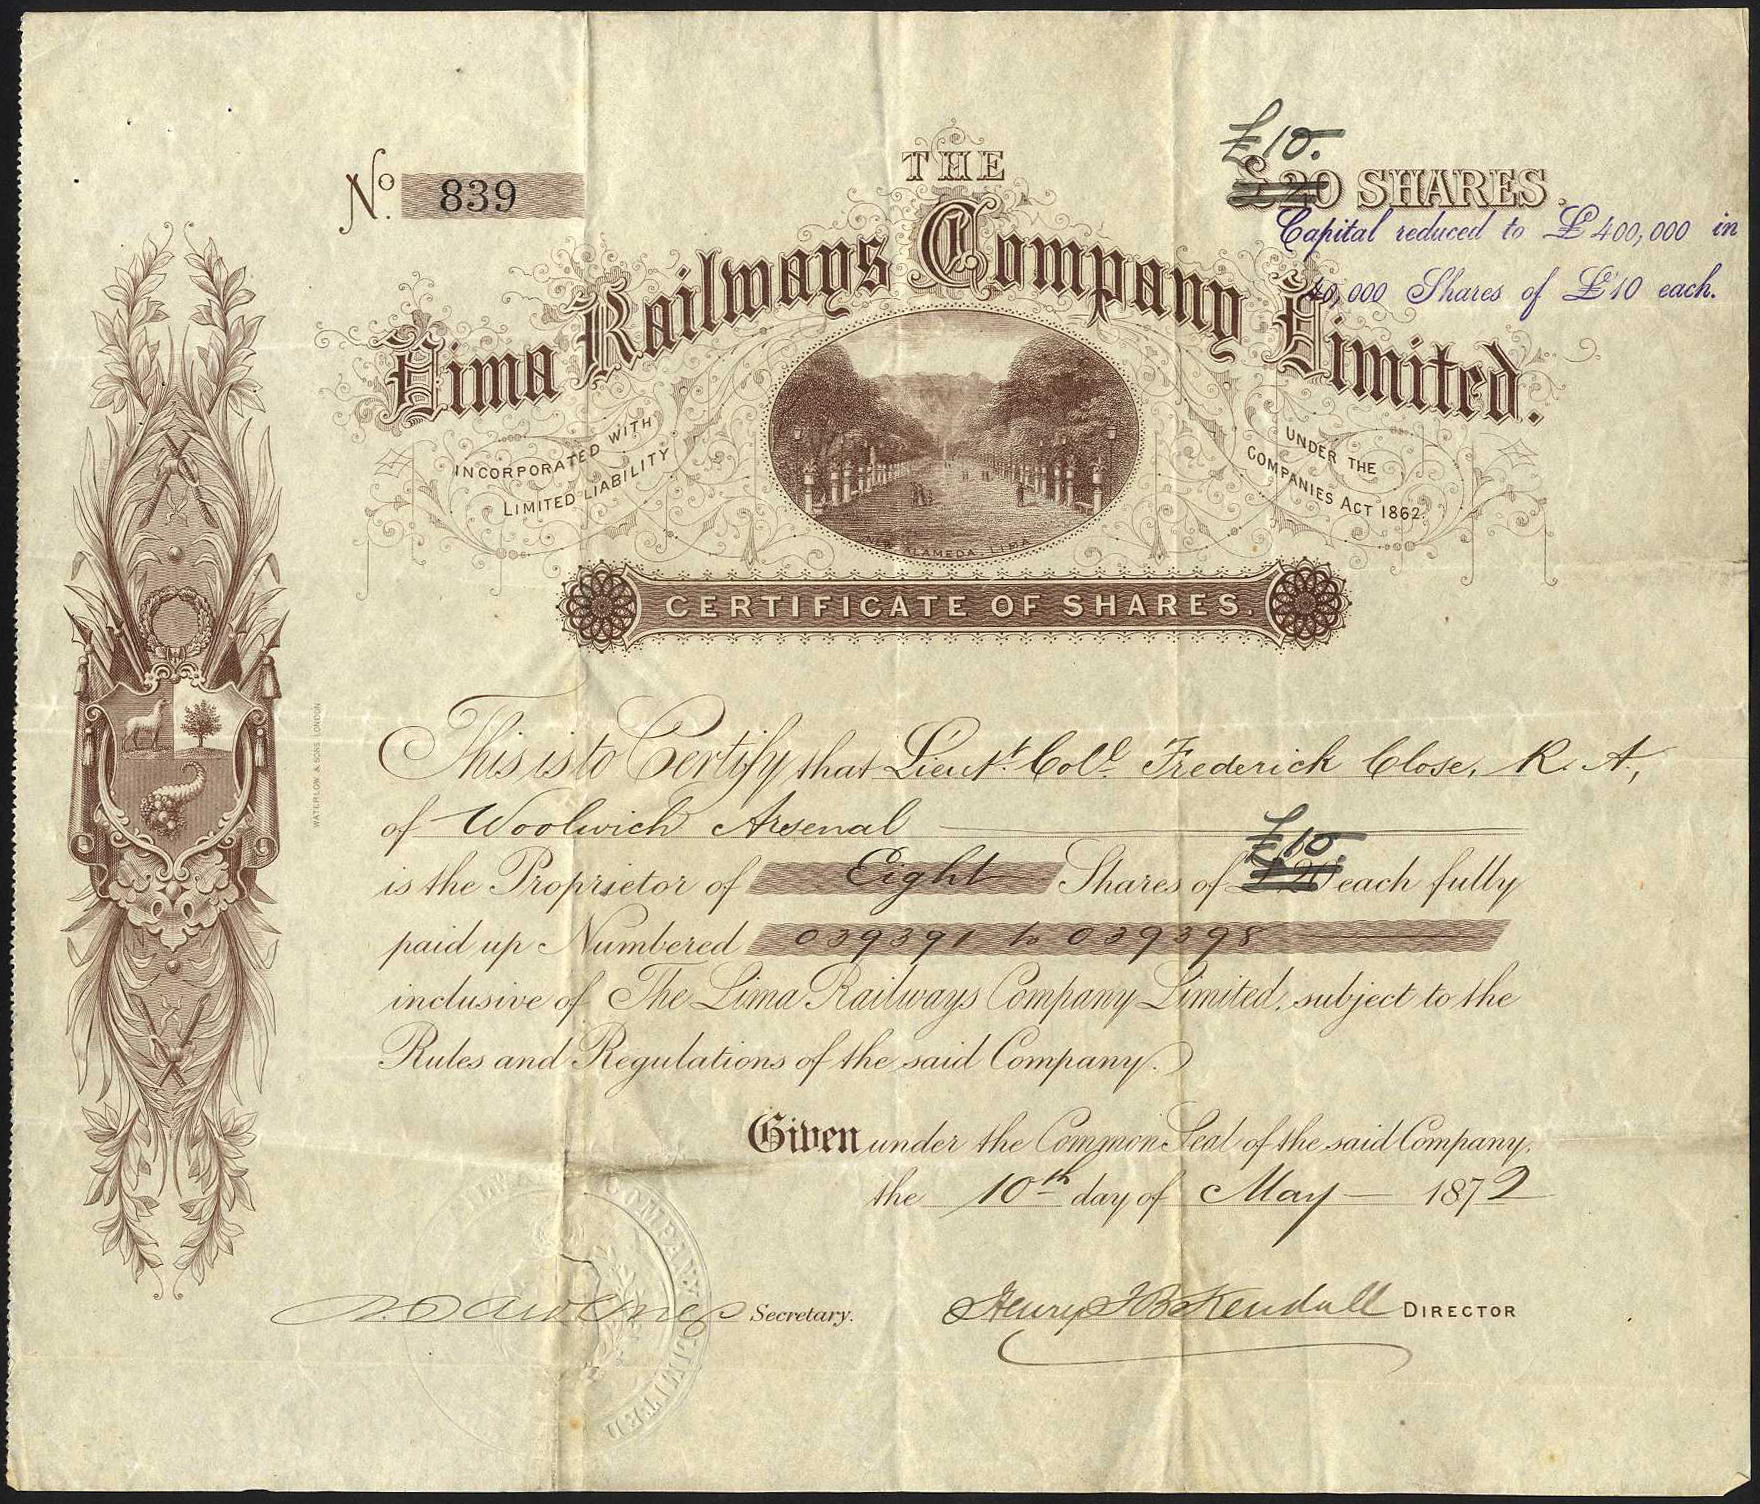 No. 839
THE
£10.
£20 SHARES.
Capital reduced to £400,000 in
40,000 Shares of £10 each.
Lima Railways Company Limited.
INCORPORATED WITH
LIMITED LIABILITY
UNDER THE
COMPANIES ACT 1862.
NEW ALAMEDA, LIMA
CERTIFICATE OF SHARES.
WATERLOW & SONS LONDON
This is to Certify that Lieut. Coll. Frederick Close, R. A,
of Woolwich Arsenal
£10.
is the Proprietor of Eight Shares of £20 each fully
paid up Numbered 039391 to 039398
inclusive of The Lima Railways Company Limited, subject to the
Rules and Regulations of the said Company.
Given under the Common Seal of the said Company,
the 10th day of May 1872
Secretary.
Henry J B Kendall DIRECTOR
COMPANY LIMITED